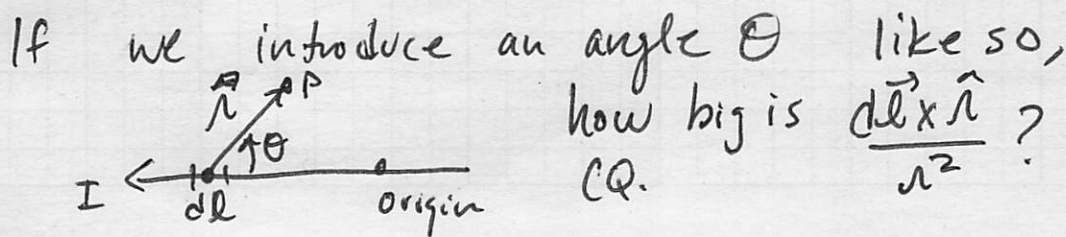 If we introduce an angle θ like so,
how big is dl⃗ × r̂ / r² ?
CQ.
r⃗ P
θ
I dl origin